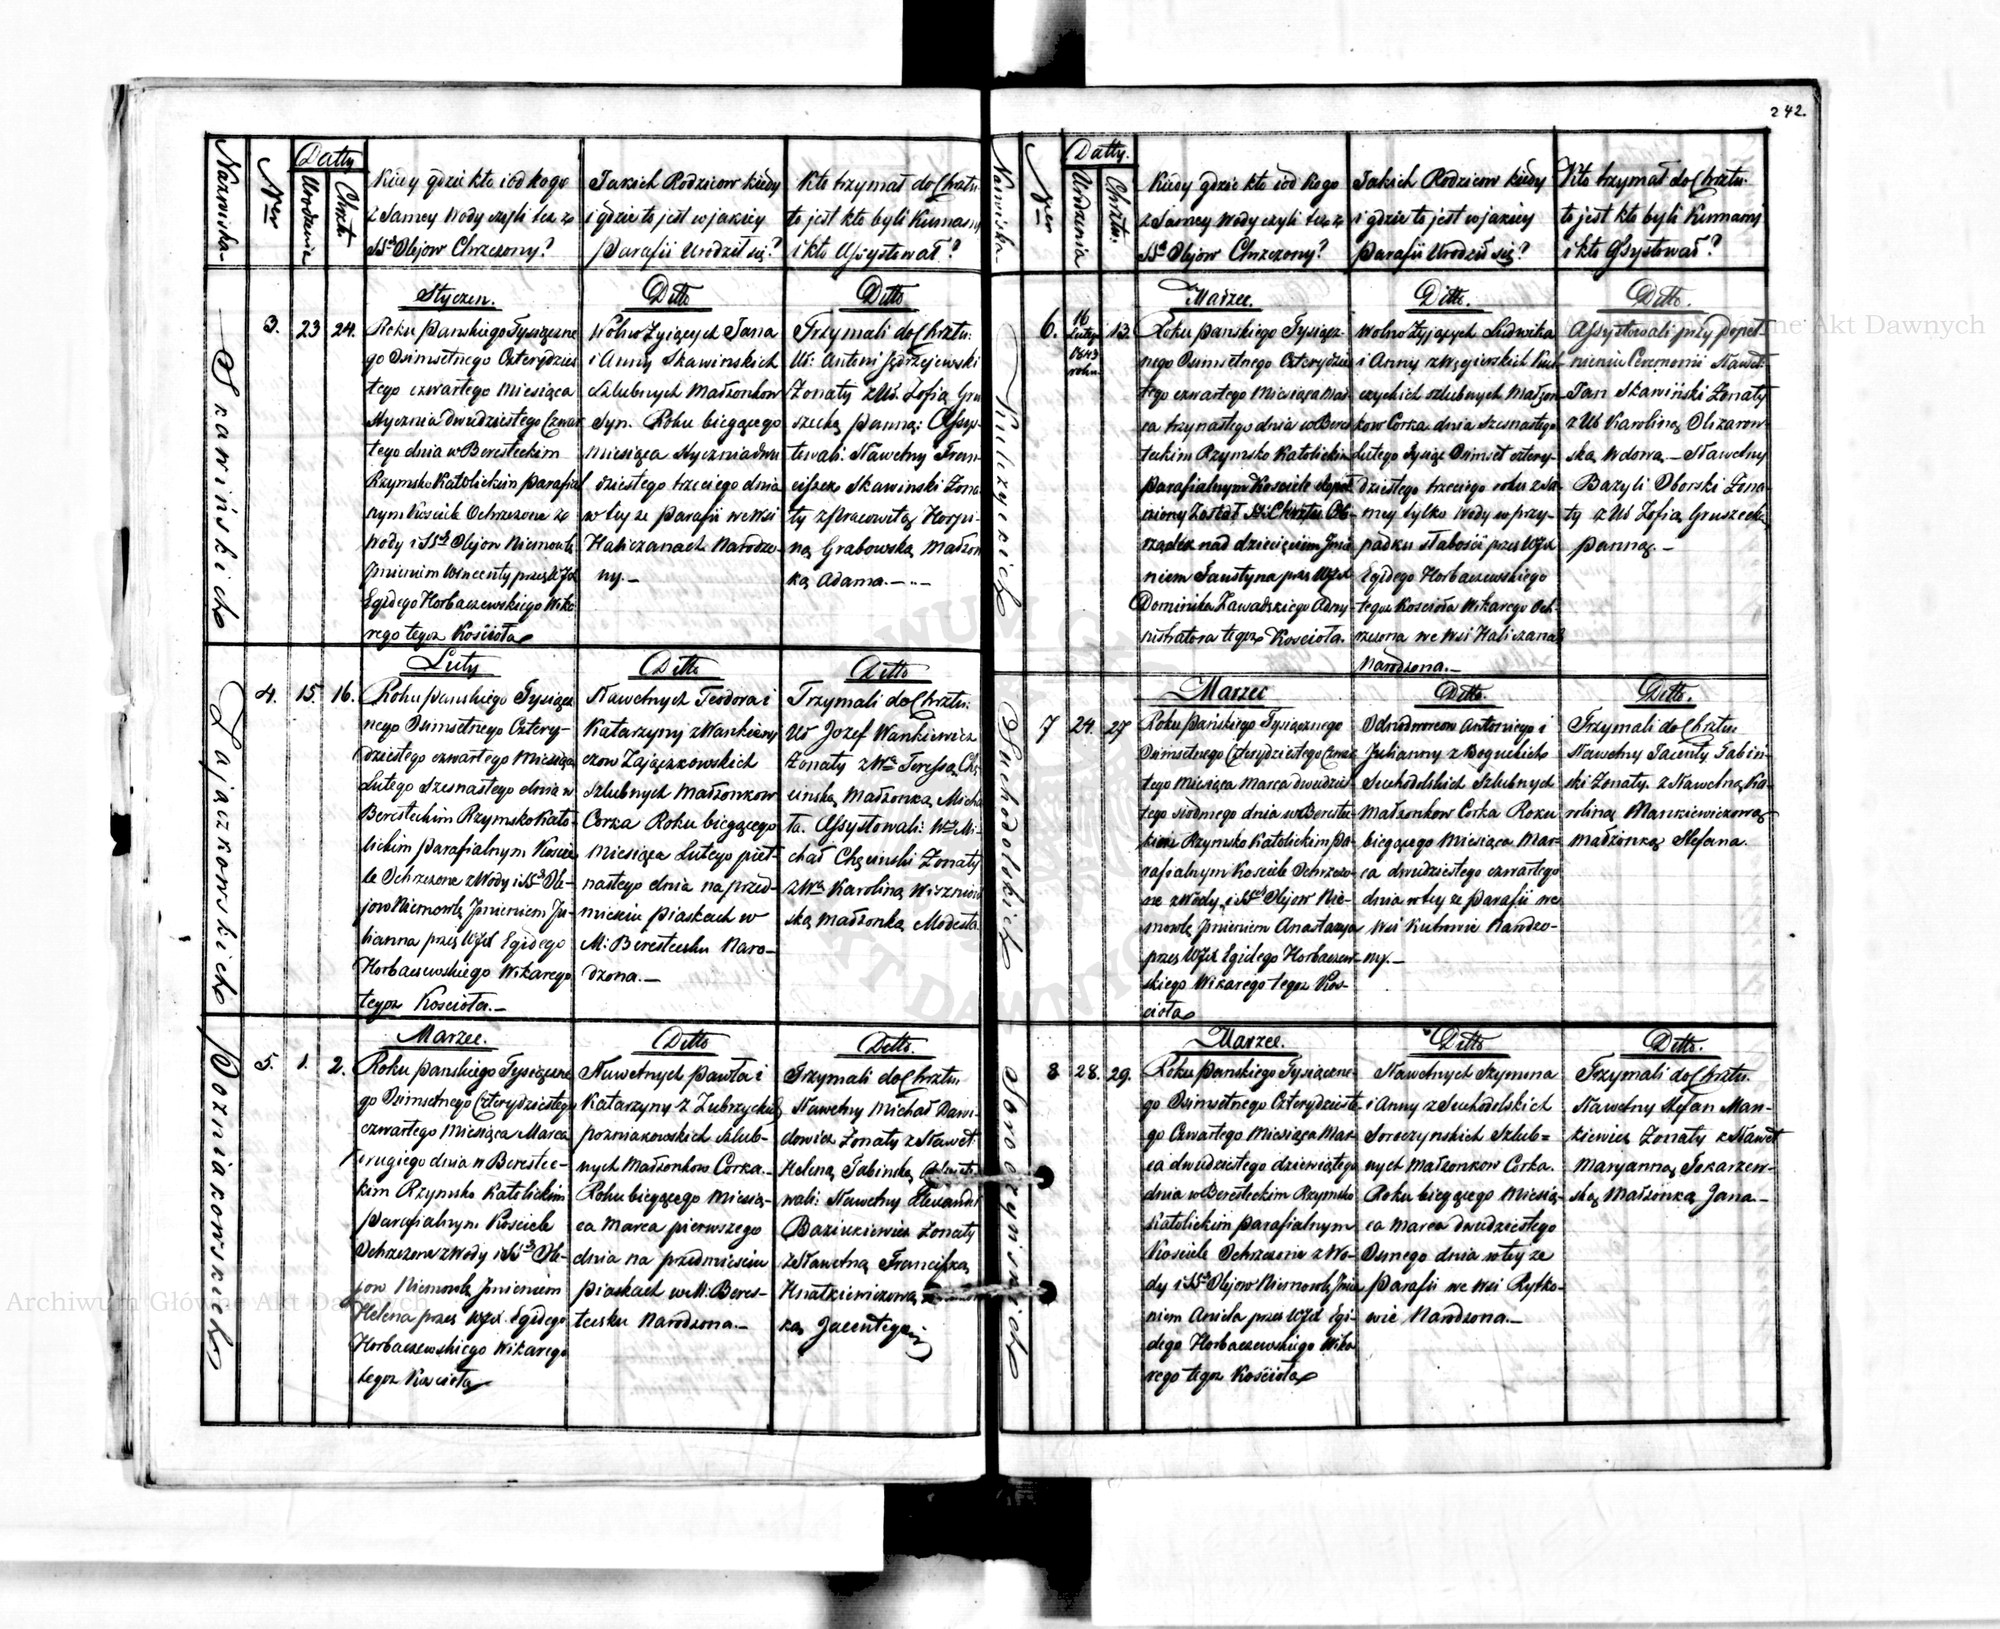 242.
Nazwiska
Ner
Datty
Urodzenia
Chrztu.
Kiedy gdzie kto i od kogo
z Samey Wody czyli też z
SSch Olejow Chrzczony?
Jakich Rodzicow kiedy
i gdzie to jest w jakiey
Parafii Urodził się?
Kto trzymał do Chrztu
to jest kto byli Kumamy
i kto Assystował?
Skawińskich
3. 23 24.
Styczen.
Roku Panskiego Tysiączne
go Osimsetnego Czterydzies
tego czwartego Miesiąca
Stycznia dwudziestego Czwar
tego dnia w Beresteckim
Rzymsko Katolickim Parafial
nym Kosciele Ochrzczone z
Wody i SSch Olejow Niemowle
Jmieniem Wincenty przez WJX
Egidego Horbaczewskiego Wika
rego tegoż Kościoła
Ditto
Wolno Zyiących Jana
i Anny Skawinskich
Szlubnych Małżonkow
Syn. Roku biegącego
Miesiąca Stycznia dwu
dziestego trzeciego dnia
w tey że Parafii we Wsi
Haliczanach Narodzo-
ny.—
Ditto
Trzymali do Chrztu:
Ur: Antoni Jędrzejewski
Żonaty z Ur. Zofią Gru
szecką Panną: Assys-
towali: Sławetny Fran-
ciszek Skawinski Żona
ty z Pracowitą Horpi-
ną Grabowską Małżon
ką Adama.—..—
Zajączkowskich
4. 15. 16.
Luty
Roku Panskiego Tysiącz
nego Osimsetnego Cztery-
dziestego czwartego Miesiąca
Lutego Szesnastego dnia w
Beresteckim Rzymsko Kato-
lickim Parafialnym Koście
le Ochrzczone z Wody i SSch Ole-
jow Niemowle Jmieniem Ju-
lianna przez WJX Egidego
Horbaczewskiego Wikarego
tegoż Kościoła.—
Ditto
Sławetnych Teodora i
Katarzyny z Wankiewi
czow Zajączkowskich
Szlubnych Małżonkow
Corka Roku biegącego
Miesiąca Lutego pięt-
nastego dnia na przed-
mieściu Piaskach w
M: Beresteczku Naro-
dzona.—
Ditto
Trzymali do Chrztu:
Ur Jozef Wankiewicz
Żonaty z Wą Teressą Chę
cinską Małżonką Micha
ła. Assystowali: Wny Mi-
chał Chęcinski Żonaty
z Wą Karoliną Wiszniow
ską Małżonką Modesta
Pozniakowskich
5. 1. 2.
Marzec.
Roku Panskiego Tysiączne
go Osimsetnego Czterydziestego
czwartego Miesiąca Marca
drugiego dnia w Berestec-
kim Rzymsko Katolickim
Parafialnym Kościele
Ochrzczone z Wody i SSch Ole-
jow Niemowle Jmieniem
Helena przez WJX Egidego
Horbaczewskiego Wikarego
tegoż Kościoła
Ditto
Sławetnych Pawła i
Katarzyny z Zubrzyckich
Pozniakowskich Szlub-
nych Małżonkow Corka.—
Roku biegącego Miesią-
ca Marca pierwszego
dnia na przedmieściu
Piaskach w M: Beres-
teczku Narodzona.—
Ditto.
Trzymali do Chrztu
Sławetny Michał Dawi-
dowicz Żonaty z Sławet
Heleną Gabinską
wali: Sławetny Alexander
Baziukiewicz Żonaty
z Sławetną Franciszką
Hnatkiewiczową
ką Jacentego
Nazwiska
Ner
Datty.
Urodzenia
Chrztu.
Kiedy gdzie kto i od kogo
z Samey Wody czyli też z
SSch Olejow Chrzczony?
Jakich Rodzicow kiedy
i gdzie to jest w jakiey
Parafii Urodził się?
Kto trzymał do Chrztu
to jest kto byli Kumamy
i kto Assystował?
6. 16 Lutego 1843 roku. 13.
Marzec.
Roku Panskiego Tysiącz-
nego Osimsetnego Czterydzies
tego czwartego Miesiąca Mar
ca trzynastego dnia w Beres
teckim Rzymsko Katolickim
Parafialnym Kosciele dopeł
niony Został Chrztu Ob-
rządek nad dziecięciem Jmie
niem Faustyna przez WJX
Dominika Zawadzkiego Admi-
nistratora tegoż Kościoła.
Ditto.
Wolno Żyjących Ludwika
i Anny z Węgierskich
czyckich szlubnych Małżon
kow Corka dnia Szesnastego
Lutego Tysiąc Osimset cztery-
dziestego trzeciego roku z Sa-
mey tylko Wody w przy-
padku słabości przez WJX
Egidego Horbaczewskiego
tegoż Kościoła Wikarego Och-
rzczona we Wsi Haliczanach
Narodzona.—
Ditto.
Assystowali przy dopeł-
nieniu Ceremonii Sławet.
Jan Skawiński Żonaty
z Ur Karoliną Olizarow-
ską Wdową.— Sławetny
Bazyli Oborski Żona-
ty z Ur Zofią Gruszecką
Panną.—
Suchodolskich
7 24. 27
Marzec
Roku Pańskiego Tysiącznego
Osimsetnego Czterydziestego Czwar
tego Miesiąca Marca dwudzies
tego siodmego dnia w Berestec
kim Rzymsko Katolickim Pa-
rafialnym Kosciele Ochrzczo-
ne z Wody i SSch Olejow Nie-
mowle Jmieniem Anastazya
przez WJX Egidego Horbaczew-
skiego Wikarego tegoż Koś-
cioła
Ditto.
Odnodworcow Antoniego i
Julianny z Boguckich
Suchodolskich Szlubnych
Małżonkow Corka Roku
biegącego Miesiąca Mar-
ca dwudziestego czwartego
dnia w tey że Parafii we
Wsi Kutrowie Narodzo-
ny.—
Ditto.
Trzymali do Chrztu
Sławetny Jacenty Gabin-
ski Żonaty. z Sławetną Ka-
roliną Mankiewiczową
Małżonką Stefana.
Soroczynskich
8 28. 29.
Marzec.
Roku Panskiego Tysiączne-
go Osimsetnego Czterydzieste
go Czwartego Miesiąca Mar-
ca dwudziestego dziewiątego
dnia w Beresteckim Rzymsko
Katolickim Parafialnym
Kościele Ochrzczone z Wo-
dy i SSch Olejow Niemowle Jmie
niem Aniela przez WJX Egi-
dego Horbaczewskiego Wika-
rego tegoż Kościoła
Ditto
Sławetnych Szymona
i Anny z Suchodolskich
Soroczynskich Szlub=
nych Małżonkow Corka.
Roku biegącego Miesią-
ca Marca dwudziestego
Osmego dnia w tey że
Parafii we Wsi Rytko-
wie Narodzona.—
Ditto.
Trzymali do Chrztu.
Sławetny Stefan Man-
kiewicz Żonaty z Sławet
Maryanną Tokarzew-
ską Małżonką Jana.—
Archiwum Główne Akt Dawnych